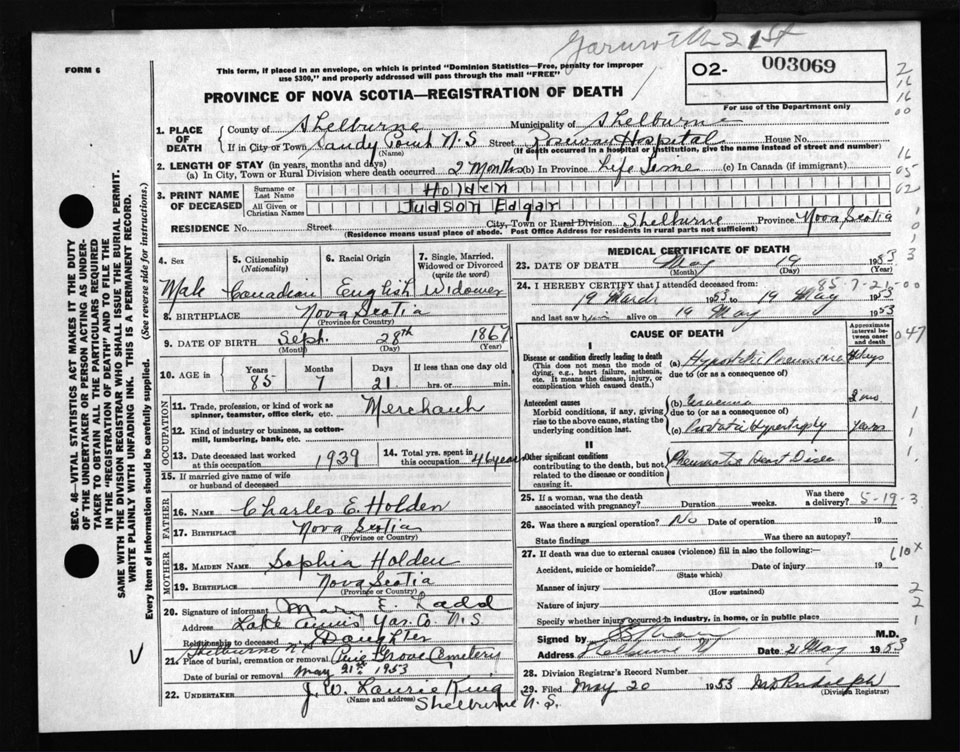 21st
FORM 6
This form, if placed in an envelope, on which is printed "Dominion Statistics—Free, penalty for improper
use $300," and properly addressed will pass through the mail "FREE"
02- 003069
For use of the Department only
PROVINCE OF NOVA SCOTIA—REGISTRATION OF DEATH
1. PLACE OF DEATH
County of Shelburne Municipality of Shelburne
If in City or Town Sandy Point N.S Street Roseway Hospital House No.
(Name) (If death occurred in a hospital or institution, give the name instead of street and number)
2. LENGTH OF STAY (in years, months and days)
(a) In City, Town or Rural Division where death occurred 2 Months (b) In Province Life Time (c) In Canada (if immigrant)
3. PRINT NAME OF DECEASED
Surname or Last Name Holden
All Given or Christian Names Judson Edgar
RESIDENCE No. Street City, Town or Rural Division Shelburne Province Nova Scotia
(Residence means usual place of abode. Post Office Address for residents in rural parts not sufficient)
4. Sex 5. Citizenship (Nationality) 6. Racial Origin 7. Single, Married, Widowed or Divorced (write the word)
Male Canadian English Widower
8. BIRTHPLACE Nova Scotia
(Province or Country)
9. DATE OF BIRTH Sept. 28th 1867
(Month) (Day) (Year)
10. AGE in Years Months Days If less than one day old
85 7 21 hrs. or min.
OCCUPATION
11. Trade, profession, or kind of work as spinner, teamster, office clerk, etc. Merchant
12. Kind of industry or business, as cotton-mill, lumbering, bank, etc.
13. Date deceased last worked at this occupation 1939 14. Total yrs. spent in this occupation 46 years
15. If married give name of wife or husband of deceased
FATHER
16. Name Charles E. Holden
17. Birthplace Nova Scotia
(Province or Country)
MOTHER
18. MAIDEN NAME Sophia Holden
19. BIRTHPLACE Nova Scotia
(Province or Country)
20. Signature of informant Mary E. Ladd
Address Lake Annis Yar. Co. N.S
Relationship to deceased Daughter
Shelburne N.S
21. Place of burial, cremation or removal Pine Grove Cemetery
Date of burial or removal May 21st 1953
22. UNDERTAKER J. W. Laurie King
(Name and address) Shelburne N.S.
MEDICAL CERTIFICATE OF DEATH
23. DATE OF DEATH May 19 1953
(Month) (Day) (Year)
24. I HEREBY CERTIFY that I attended deceased from: 85-7-21-00
19 March 1953 to 19 May 1953
and last saw him alive on 19 May 1953
CAUSE OF DEATH
Approximate interval between onset and death
I
Disease or condition directly leading to death (a) Hypostatic Pneumonia
(This does not mean the mode of dying, e.g., heart failure, asthenia, etc. It means the disease, injury, or complication which caused death)
due to (or as a consequence of)
Antecedent causes (b) Uraemia 2 mo
Morbid conditions, if any, giving rise to the above cause, stating the underlying condition last.
due to (or as a consequence of)
(c) Prostatic Hypertrophy Years
II
Other significant conditions Rheumatic Heart Disea
contributing to the death, but not related to the disease or condition causing it.
25. If a woman, was the death associated with pregnancy? Duration weeks. Was there a delivery? 5-19-3
26. Was there a surgical operation? No Date of operation 19
State findings Was there an autopsy?
27. If death was due to external causes (violence) fill in also the following:—
Accident, suicide or homicide? Date of injury 19
(State which)
Manner of injury
(How sustained)
Nature of injury
Specify whether injury occurred in industry, in home, or in public place
Signed by M.D.
Address Shelburne NS Date 21 May 1953
28. Division Registrar's Record Number
29. Filed May 20 1953
(Division Registrar)
610x
SEC. 46—VITAL STATISTICS ACT MAKES IT THE DUTY
OF THE UNDERTAKER OR PERSON ACTING AS UNDER-
TAKER TO OBTAIN ALL THE PARTICULARS REQUIRED
IN THE "REGISTRATION OF DEATH" AND TO FILE THE
SAME WITH THE DIVISION REGISTRAR WHO SHALL ISSUE THE BURIAL PERMIT.
WRITE PLAINLY WITH UNFADING INK. THIS IS A PERMANENT RECORD.
Every item of information should be carefully supplied. (See reverse side for instructions.)